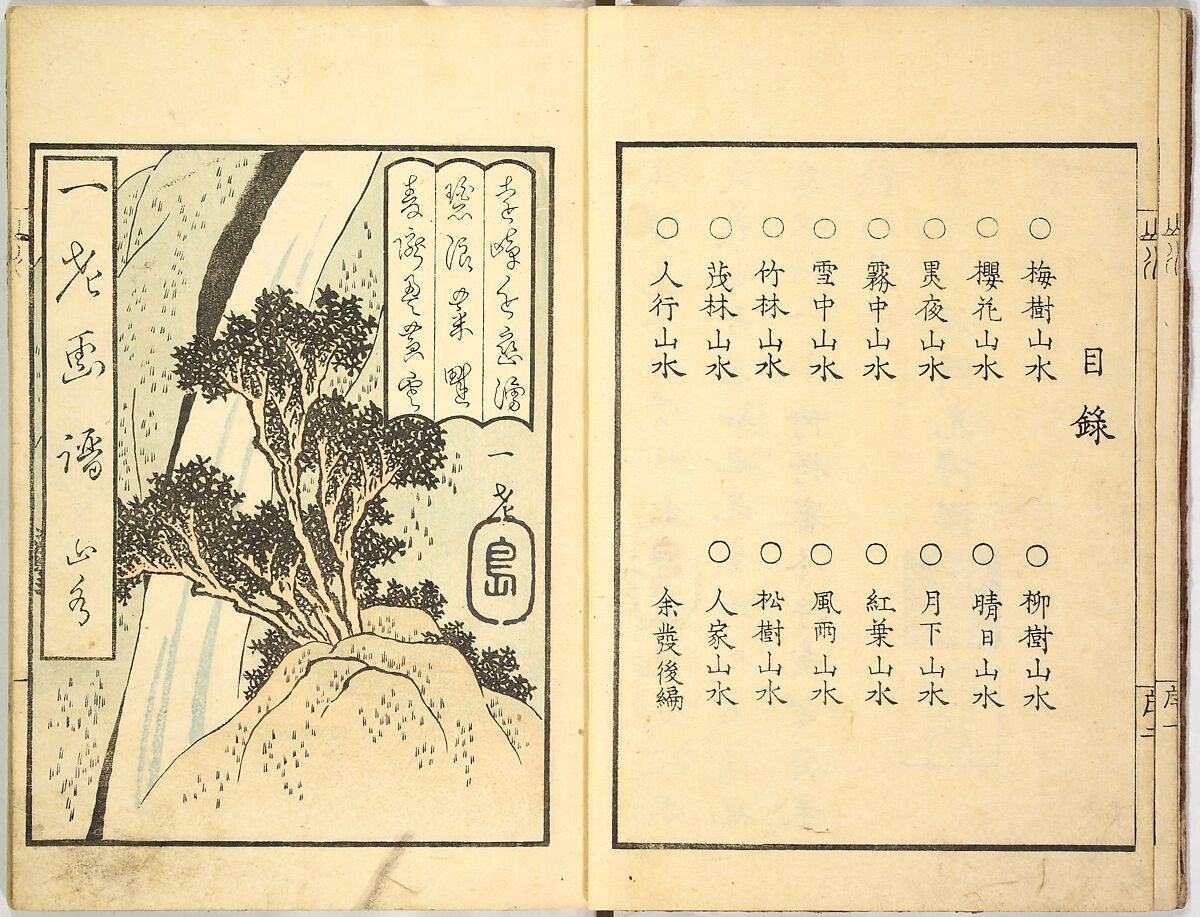 目錄
○梅樹山水 ○柳樹山水
○櫻花山水 ○晴日山水
○黒夜山水 ○月下山水
○霧中山水 ○紅葉山水
○雪中山水 ○風雨山水
○竹林山水 ○松樹山水
○茂林山水 ○人家山水
○人行山水 余發後編
碧浪
黄雲
一老
島
一老画譜 山
序一
序二